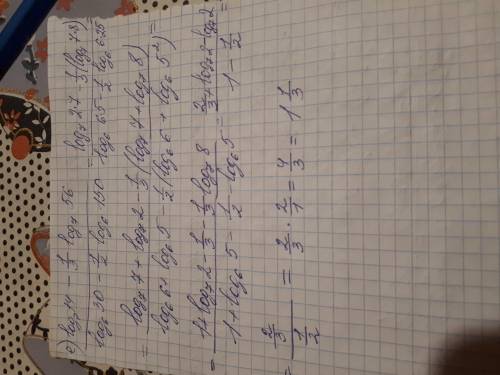 е) log₇14 - 1/3 log₇ 56 / log₆30 - 1/2 log₆ 150 = log₇ 2·7 - 1/3 (log₇ 7·8) / log₆ 6·5 - 1/2 log₆ 6·25 =
= log₇ 7 + log₇ 2 - 1/3 (log₇ 7 + log₇ 8) / log₆ 6 + log₆ 5 - 1/2 (log₆ 6 + log₆ 5²) =
= 1 + log₇ 2 - 1/3 - 1/3 log₇ 8 / 1 + log₆ 5 - 1/2 - log₆ 5 = 2/3 + log₇ 2 - log₇ 2 / 1 - 1/2 =
= 2/3 / 1/2 = 2/3 · 2/1 = 4/3 = 1 1/3